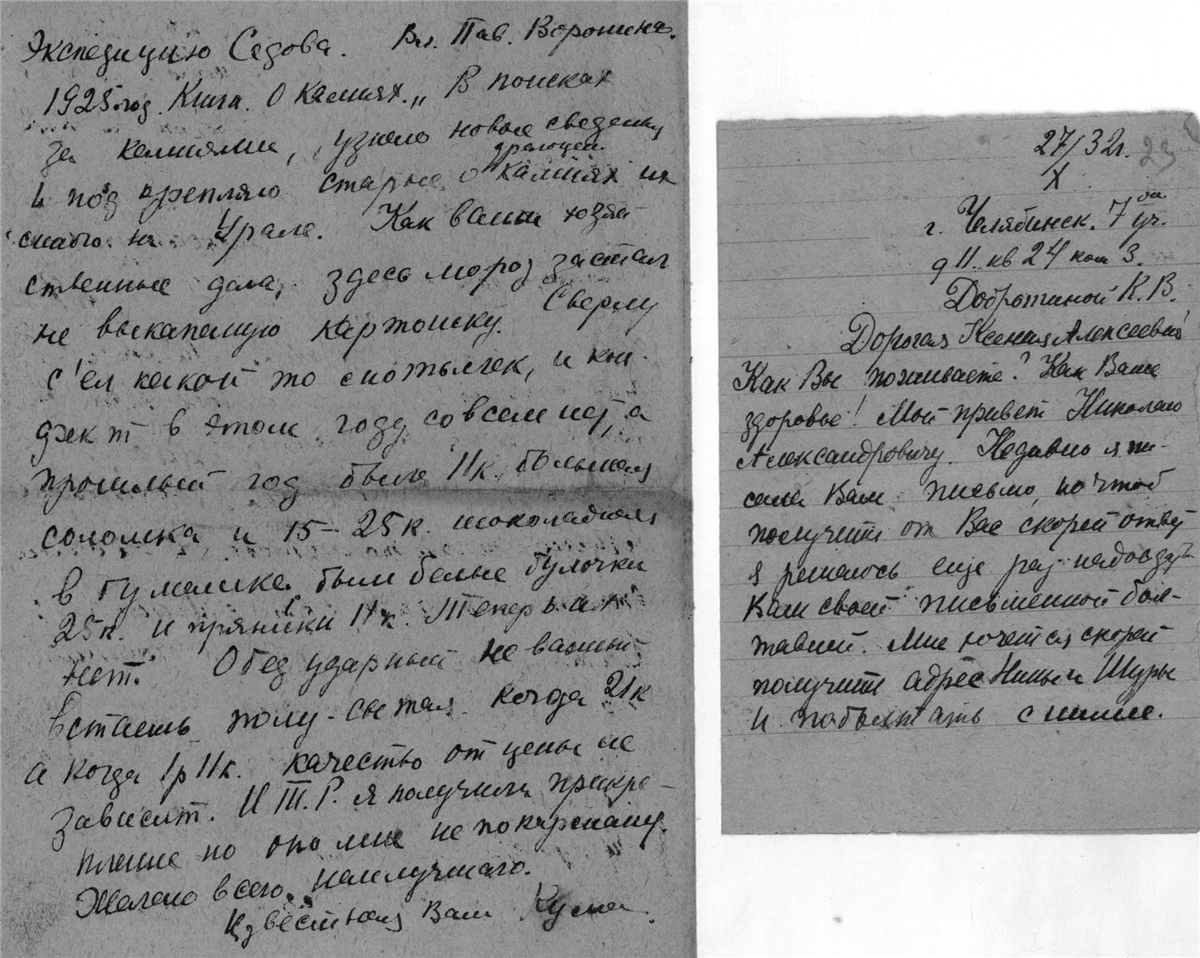 Экспедицию Седова. Вл. Пав. Воронина.
1925 год. Книга. О камнях. „В поисках
за камнями, узнаю новые сведения
и подкрепляю старые о драгоцен. камнях их
на Урале. Как ваши хозяй
ственные дела, здесь мороз застал
не выкапаную картошку. Сверху
с'ел какой то мотылек, и кон-
фект в этом году совсем нет, а
прошлый год была 11к. большая
соломка, и 15-25к. шоколадная
в бумашке. были белые булочки
25к. и пряники 11к. Теперь их
нет. Обед ударный не важный
встаешь полу-сытая когда 21к
а когда 1р 11к. качество от цены не
зависит. И.Т.Р. я получила прикре-
пление но оно мне не по карману.
Желаю всего наилучшаго.
Известная Вам Кума.
27/X 32г. 23
г. Челябинск. 7ой уч.
д 11. кв 24 ком 3.
Добротиной К. В.
Дорогая Ксения Алексеевна!
Как Вы поживаете? Как Ваше
здоровье! Мой привет Николаю
Александровичу. Недавно я пи-
сала Вам письмо, но чтоб
получить от Вас скорей ответ
я решаюсь еще раз надоедать
Вам своей письменной бол-
тавней. Мне хочется скорей
получить адрес Нины и Шуры
и поболтать с ними.